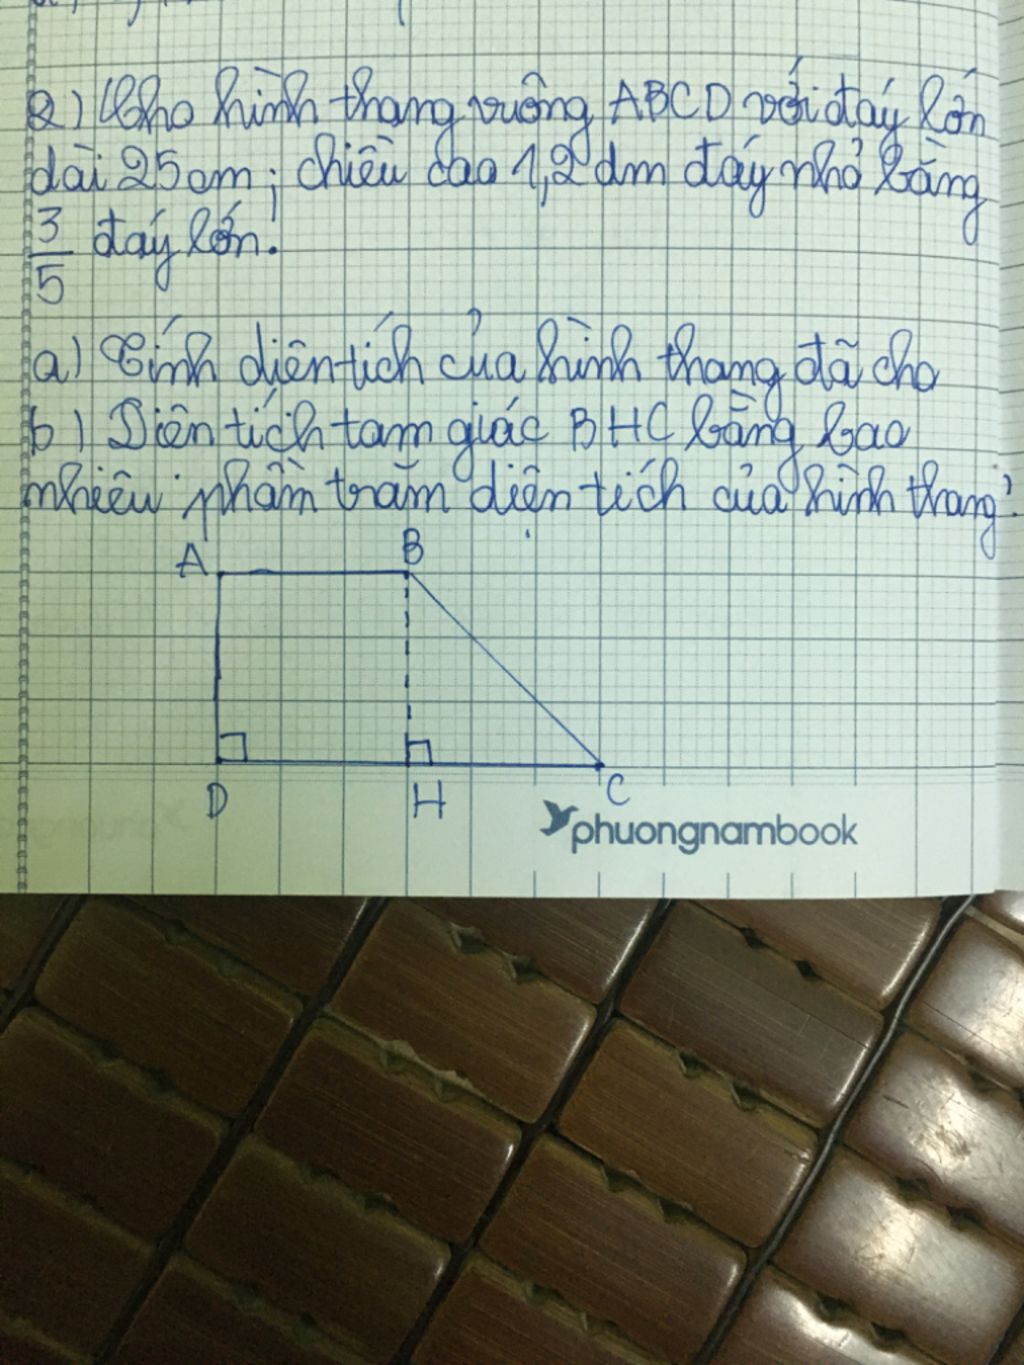 2) Cho hình thang vuông ABCD với đáy lớn
dài 25cm; chiều cao 1,2dm đáy nhỏ bằng
3/5 đáy lớn.
a) Tính diện tích của hình thang đã cho
b) Diện tích tam giác BHC bằng bao
nhiêu phần trăm diện tích của hình thang?
A B
D H C
phuongnambook